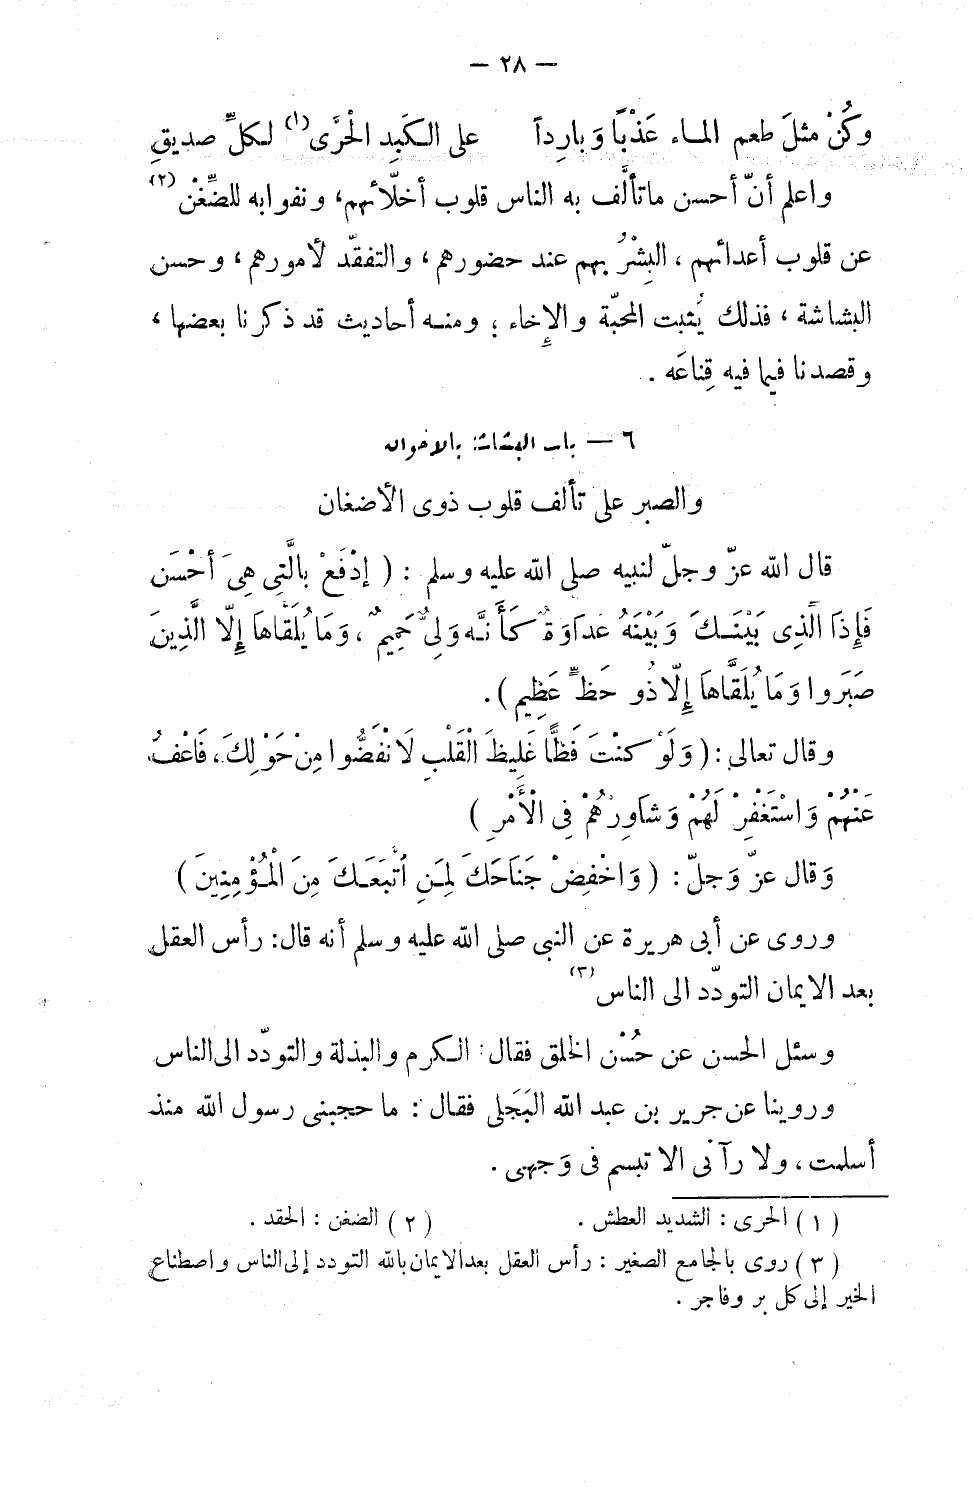 — ٢٨ —
وكُنْ مثلَ طعم المـاء عَذْبًا وَبارِداً على الـكَبِد الْحَرَّى(١) لـكلِّ صديقٍ
واعلم أنّ أحسن ماتألَّف به الناس قلوب أخلّائهم، ونفوا به للضِّغْن(٢)
عن قلوب أعدائهم ، البِشْرُ بهم عند حضورهم، والتفقّد لأمورهم، وحسن
البشاشة ، فذلك يُثبت المحبّة والإِخاء ؛ ومنـه أحاديث قد ذكرنا بعضها ،
وقصدنا فيما فيه قِناعَه .
٦ — باب البشاشة بالاخوان
والصبر على تألف قلوب ذوى الأضغان
قال الله عزّ وجلّ لنبيه صلى الله عليه وسلم : ( إدْفَعْ بالَّتِي هِيَ أحْسَن
فَإِذَا الَّذِى بَيْنَـكَ وَبَيْنَهُ عداوَةٌ كَأَنَّه وَلِىٌّ حَمِيمٌ ، وَمَا يُلَقَّاها إِلّا الَّذِينَ
صَبَروا وَمَا يُلَقَّاها إِلّا ذُو حَظٍّ عَظِيم ) .
وقال تعالى : ( وَلَوْ كنْتَ فَظًّا غَلِيظَ الْقَلْبِ لَانْفَضُّوا مِنْ حَوْلِكَ ، فَاعْفُ
عَنْهُمْ وَاسْتَغْفِرْ لَهُمْ وَشَاوِرْهُمْ فِى الْأَمْرِ )
وَقال عزّ وَجلّ : ( وَاخْفِضْ جَنَاحَكَ لِمَـنِ اتَّبَعَـكَ مِنَ الْمُؤْمِنِينَ )
وروى عن أبى هريرة عن النبى صلى الله عليه وسلم أنه قال: رأس العقل
بعد الايمان التودّد الى الناس(٣)
وسئل الحسن عن حُسْن الخلق فقال : الـكرم والبذلة والتودّد الى الناس
وروينا عن جرير بن عبد الله البَجَلى فقال : ما حجبنى رسول الله منذ
أسلمت ، ولا رآنى الا تبسم فى وَجهى .
( ١ ) الحرى : الشديد العطش . ( ٢ ) الضغن : الحقد .
( ٣ ) روى بالجامع الصغير : رأس العقل بعد الايمان بالله التودد إلى الناس واصطناع
الخير إلى كل بر وفاجر .